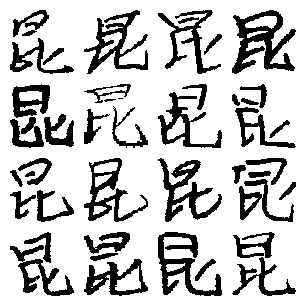 昆昆昆昆
昆昆昆昆
昆昆昆昆
昆昆昆昆